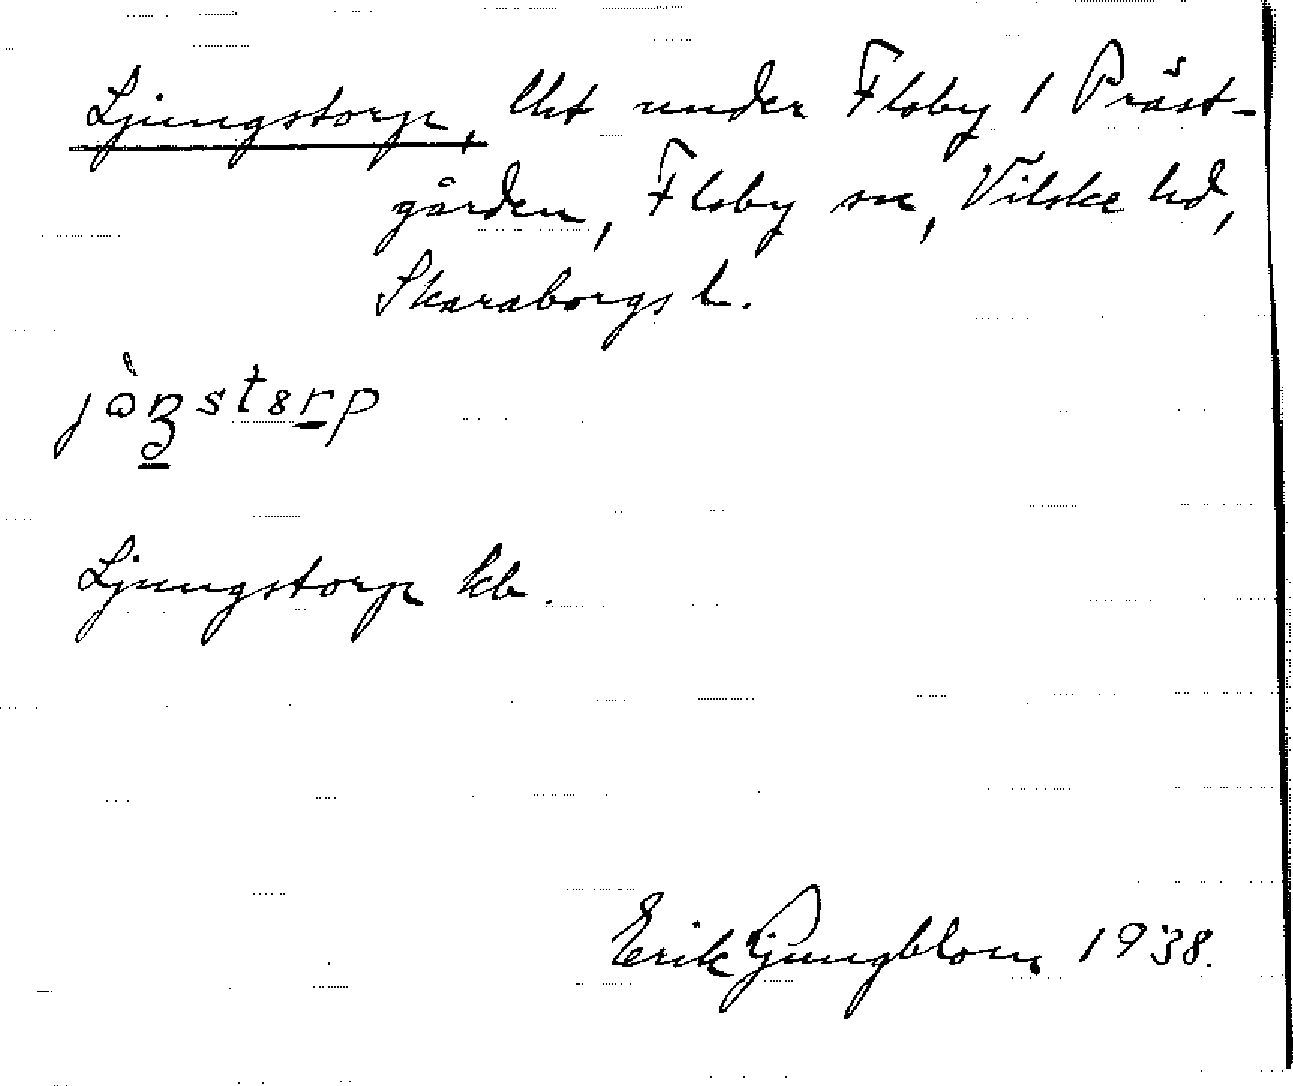 Ljungstorp, lht under Floby 1 Präst-
gården, Floby sn, Vilske hd,
Skaraborgs l.
Ljungstorp kb.
Erik Ljungblom 1938.